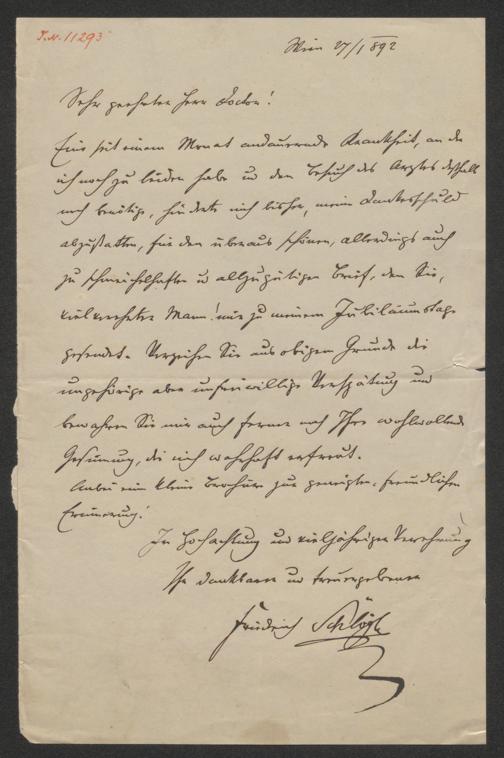 I.N. 11293
Wien 27/1 892
Sehr geehrter Herr Doctor!
Eine seit einem Monat andauernde Krankheit, an der
ich noch zu leiden habe u den Besuch des Arztes deßhalb
noch benötige, hinderte mich bisher, meine Dankesschuld
abzustatten, für den überaus schönen, allerdings auch
zu schmeichelhaften u allzugütigen Brief, den Sie,
vielverehrter Mann! mir zu meinem Jubiläumstage
gesendet. Verzeihen Sie aus obigem Grunde die
ungehörige aber unfreiwillige Verspätung und
bewahren Sie mir auch ferner noch Ihre wohlwollende
Gesinnung, die mich wahrhaft erfreut.
Anbei eine kleine Brochüre zur geneigten, freundlichen
Erinnerung!
In Hochachtung und vieljähriger Verehrung
Ihr dankbarer und treuergebener
Friedrich Schlögl